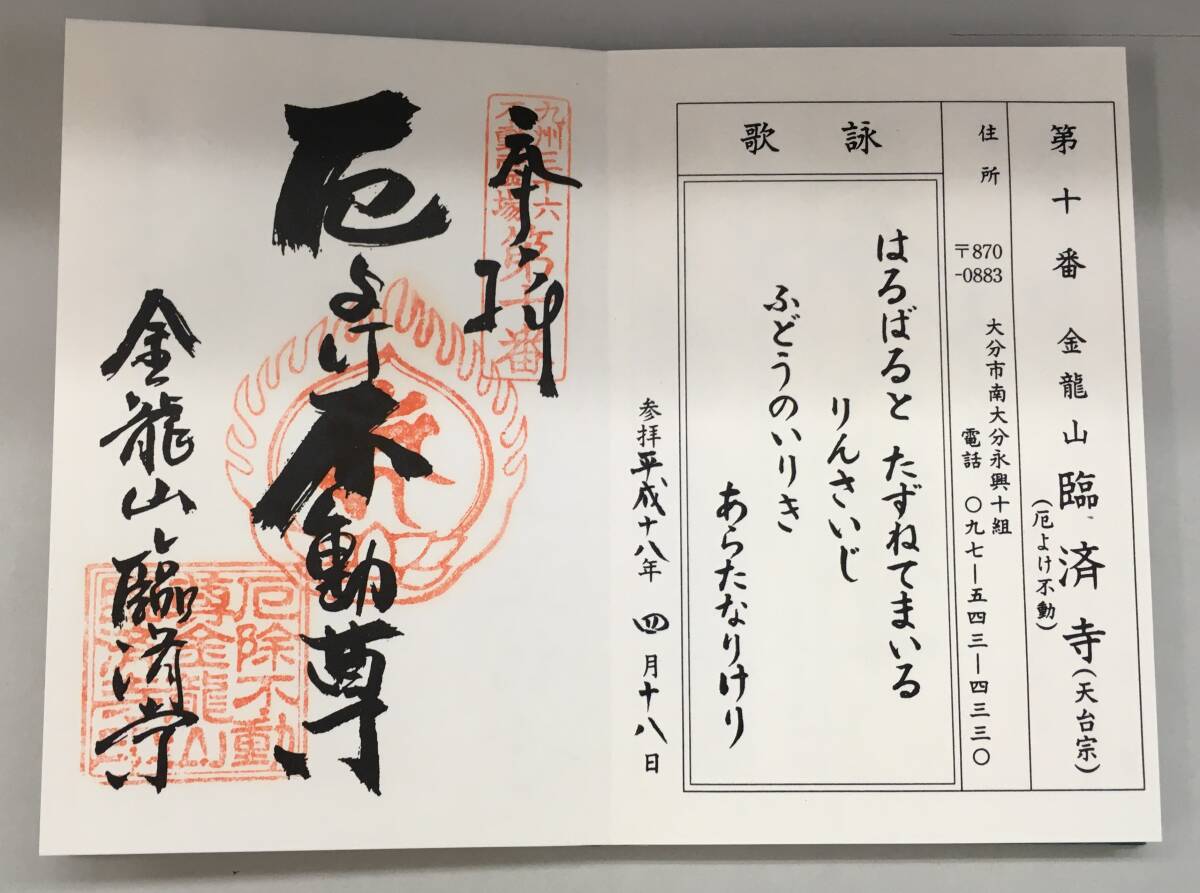 第十番 金龍山 臨済寺(天台宗)
(厄よけ不動)
住所 〒870-0883 大分市南大分永興十組
電話 〇九七―五四三―四三三〇
詠歌
はるばると たずねてまいる
りんさいじ
ふどうのいりき
あらたなりけり
参拝平成十八年 四月十八日
奉拝
九州三十六
不動霊場
第十番
厄よけ不動尊
金龍山 臨済寺
厄除不動
尊金龍山